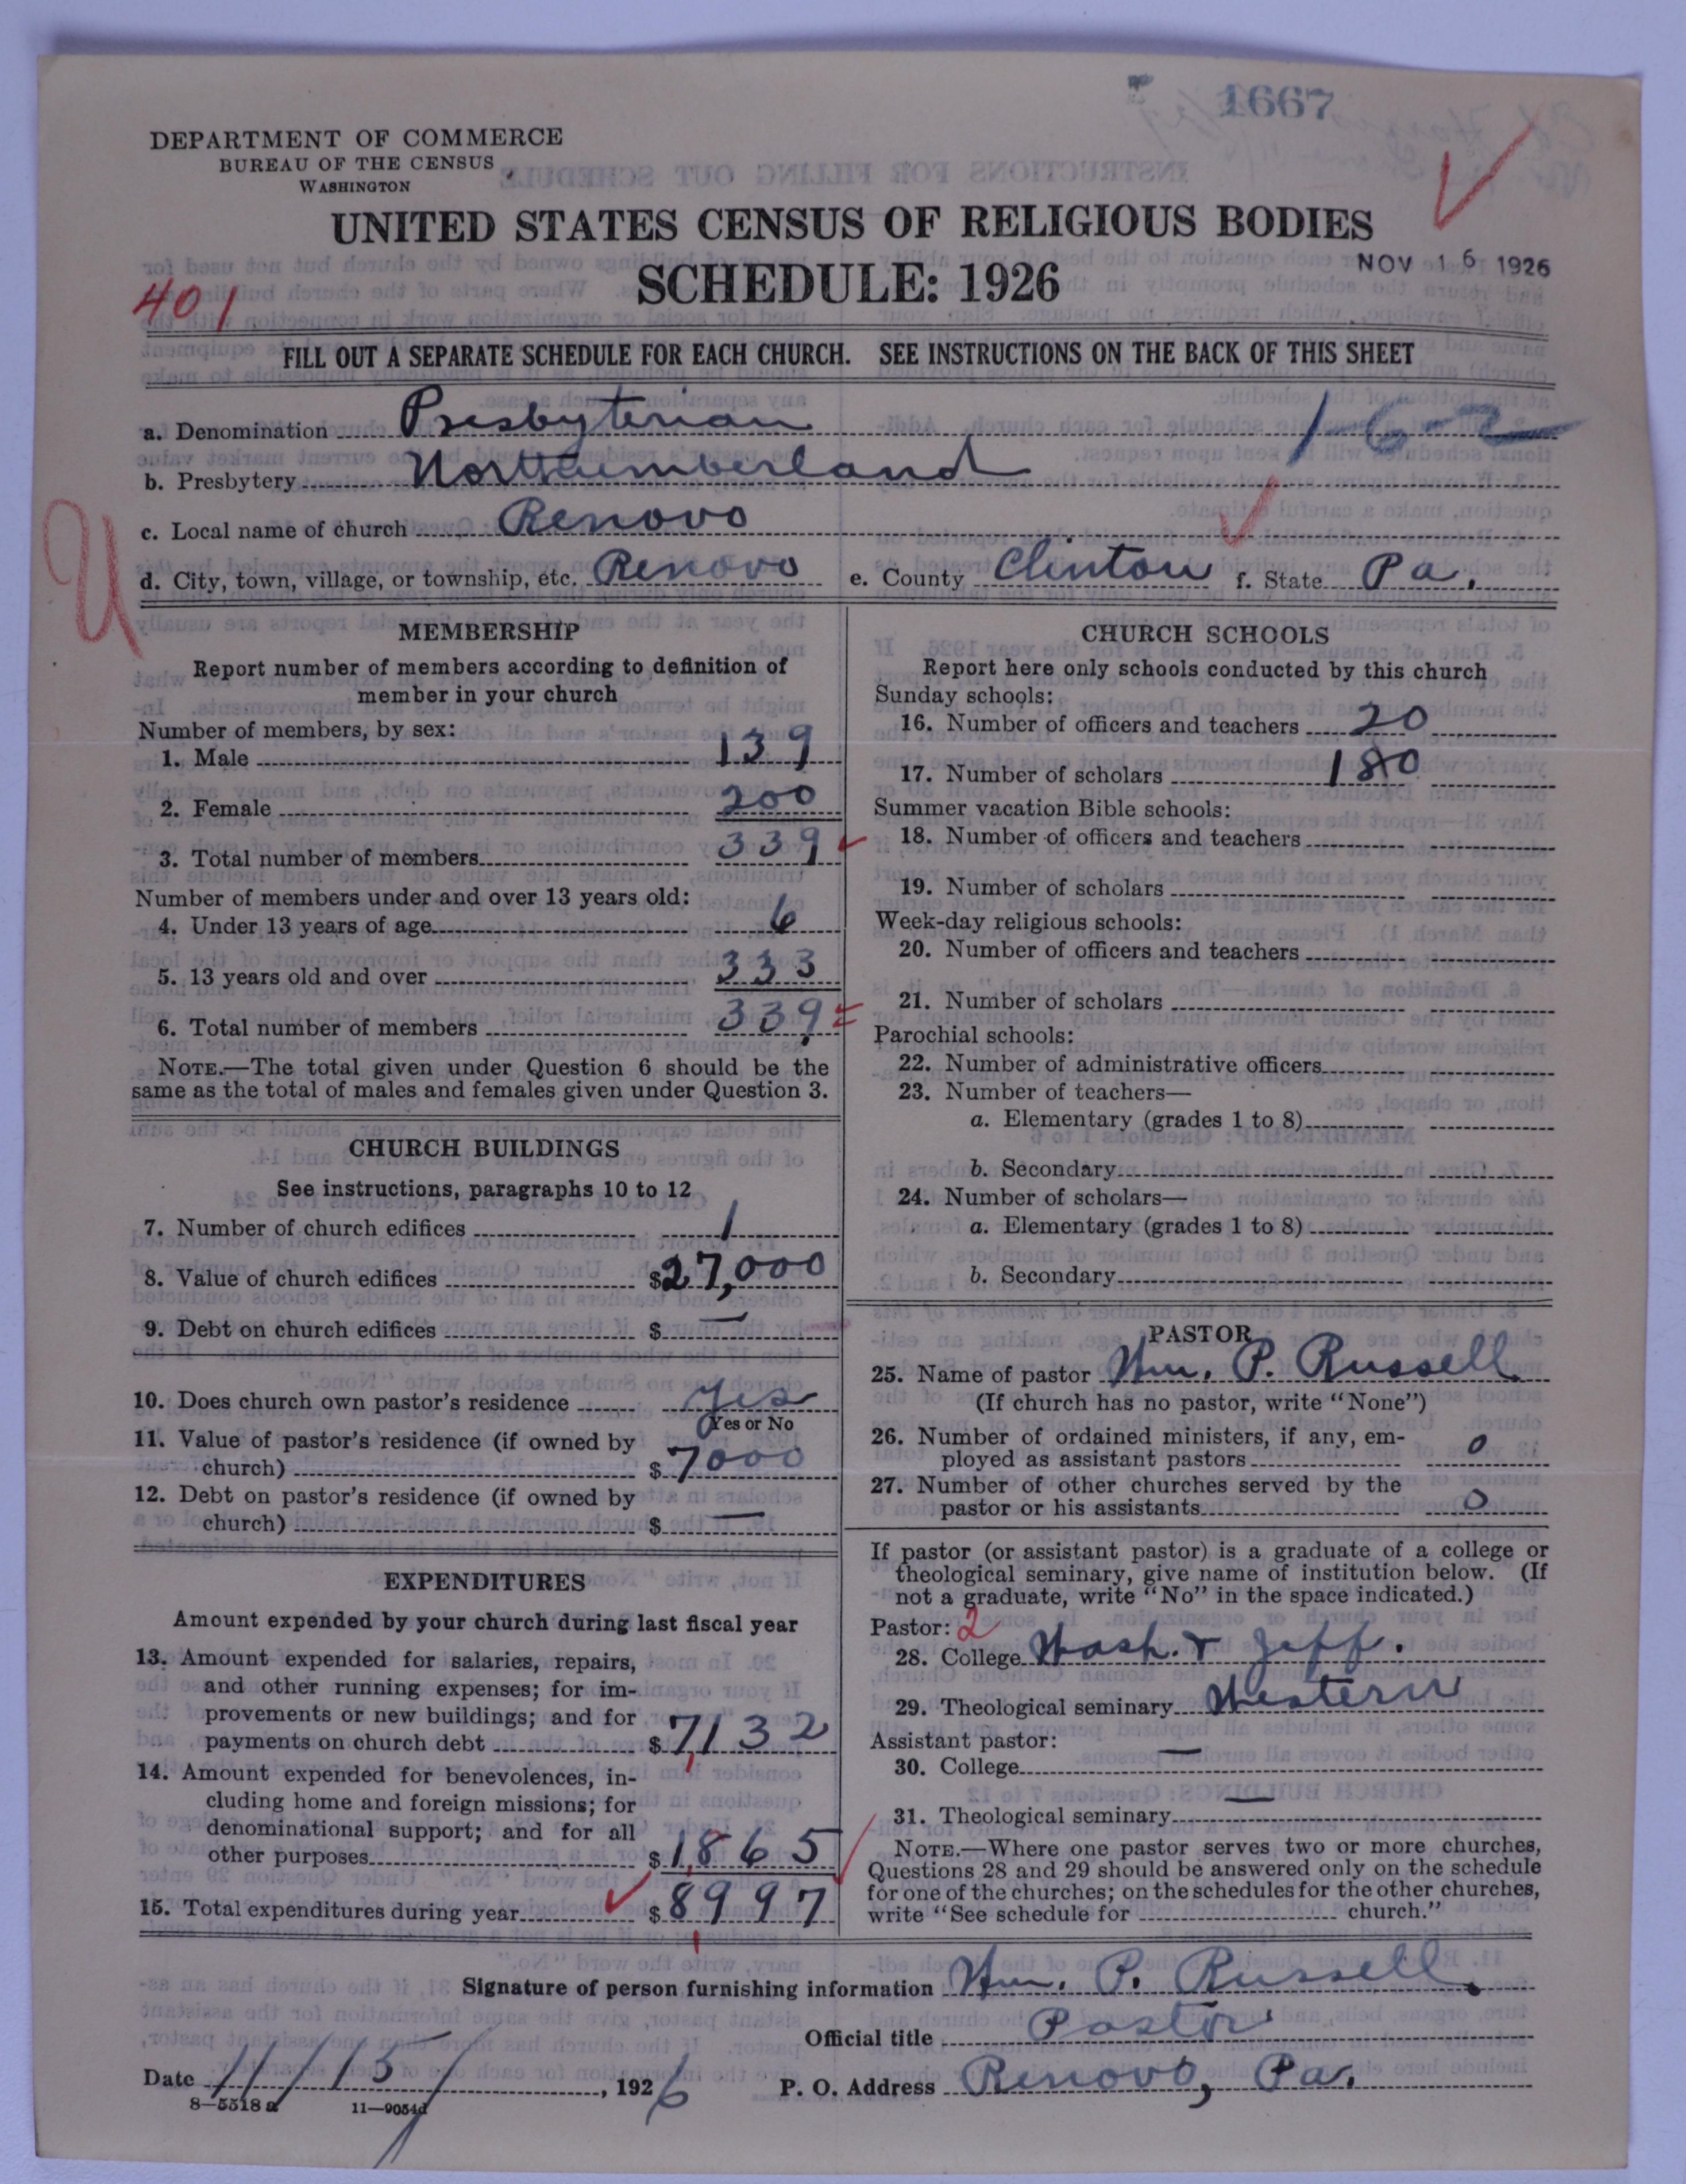 1667
DEPARTMENT OF COMMERCE
BUREAU OF THE CENSUS
WASHINGTON
UNITED STATES CENSUS OF RELIGIOUS BODIES
SCHEDULE: 1926
NOV 16 1926
401
FILL OUT A SEPARATE SCHEDULE FOR EACH CHURCH. SEE INSTRUCTIONS ON THE BACK OF THIS SHEET
a. Denomination Presbyterian 1-6-2
b. Presbytery Northumberland
c. Local name of church Renovo
d. City, town, village, or township, etc. Renovo e. County Clinton f. State Pa.
U
MEMBERSHIP
Report number of members according to definition of
member in your church
Number of members, by sex:
1. Male 139
2. Female 200
3. Total number of members 339
Number of members under and over 13 years old:
4. Under 13 years of age 6
5. 13 years old and over 333
6. Total number of members 339
NOTE.—The total given under Question 6 should be the
same as the total of males and females given under Question 3.
CHURCH BUILDINGS
See instructions, paragraphs 10 to 12
7. Number of church edifices 1
8. Value of church edifices $27,000
9. Debt on church edifices $ —
10. Does church own pastor's residence Yes
Yes or No
11. Value of pastor's residence (if owned by
church) $7000
12. Debt on pastor's residence (if owned by
church) $ —
EXPENDITURES
Amount expended by your church during last fiscal year
13. Amount expended for salaries, repairs,
and other running expenses; for im-
provements or new buildings; and for
payments on church debt $7,132
14. Amount expended for benevolences, in-
cluding home and foreign missions; for
denominational support; and for all
other purposes $1,865
15. Total expenditures during year $8,997
CHURCH SCHOOLS
Report here only schools conducted by this church
Sunday schools:
16. Number of officers and teachers 20
17. Number of scholars 180
Summer vacation Bible schools:
18. Number of officers and teachers
19. Number of scholars
Week-day religious schools:
20. Number of officers and teachers
21. Number of scholars
Parochial schools:
22. Number of administrative officers
23. Number of teachers—
a. Elementary (grades 1 to 8)
b. Secondary
24. Number of scholars—
a. Elementary (grades 1 to 8)
b. Secondary
PASTOR
25. Name of pastor Wm. P. Russell
(If church has no pastor, write "None")
26. Number of ordained ministers, if any, em-
ployed as assistant pastors 0
27. Number of other churches served by the
pastor or his assistants 0
If pastor (or assistant pastor) is a graduate of a college or
theological seminary, give name of institution below. (If
not a graduate, write "No" in the space indicated.)
Pastor: 2
28. College Wash. & Jeff.
29. Theological seminary Western
Assistant pastor:
30. College —
31. Theological seminary —
NOTE.—Where one pastor serves two or more churches,
Questions 28 and 29 should be answered only on the schedule
for one of the churches; on the schedules for the other churches,
write "See schedule for church."
Signature of person furnishing information Wm. P. Russell.
Official title Pastor
Date 11/15/, 1926 P. O. Address Renovo, Pa.
8—5518 a 11—9054d